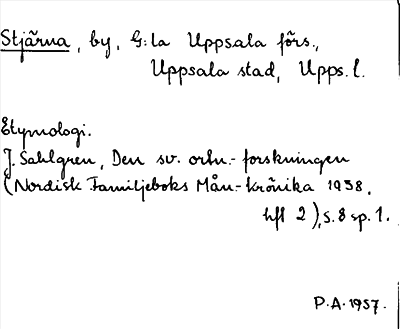 Stjärna, by, G:la Uppsala förs.,
Uppsala stad, Upps. l.
Etymologi.
J. Sahlgren, Den sv. ortn.-forskningen
(Nordisk Familjeboks Mån.-krönika 1938,
hft 2), s. 8 sp. 1.
P.A. 1957.